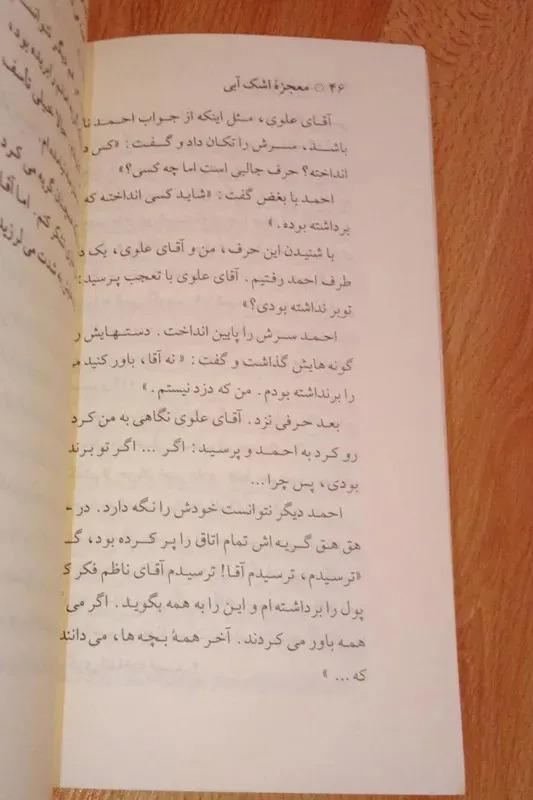 ۴۶ ○ معجزهٔ اشک آبی
آقای علوی، مثل اینکه از جواب احمد
باشد، سرش را تکان داد و گفت: «کس
انداخته؟ حرف جالبی است اما چه کسی؟»
احمد با بغض گفت: «شاید کسی انداخته که
برداشته بوده.»
با شنیدن این حرف، من و آقای علوی، یک
طرف احمد رفتیم. آقای علوی با تعجب پرسید:
توبر نداشته بودی؟»
احمد سرش را پایین انداخت. دستهایش
گونه هایش گذاشت و گفت: «نه آقا، باور کنید
را برنداشته بودم. من که دزد نیستم.»
بعد حرفی نزد. آقای علوی نگاهی به من کرد
رو کرد به احمد و پرسید: اگر ... اگر تو
بودی، پس چرا...
احمد دیگر نتوانست خودش را نگه دارد. در
هق هق گریه اش تمام اتاق را پر کرده بود،
«ترسیدم، ترسیدم آقا! ترسیدم آقای ناظم فکر
پول را برداشته ام و این را به همه بگوید. اگر
همه باور می کردند. آخر همهٔ بچه ها، می دانند
که ... »
دیگر
حالا خیلی تأسف
گریه می کرد
کنم. اما آقا
به شدت می لرزید